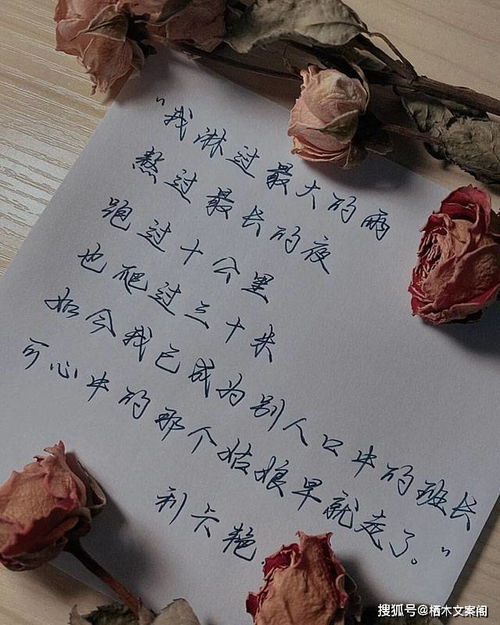 “我淋过最大的雨
熬过最长的夜
跑过十公里
也爬过三十米
如今我已成为别人口中的班长
可心中的那个姑娘早就走了。”
利六艳
搜狐号@栖木文案阁